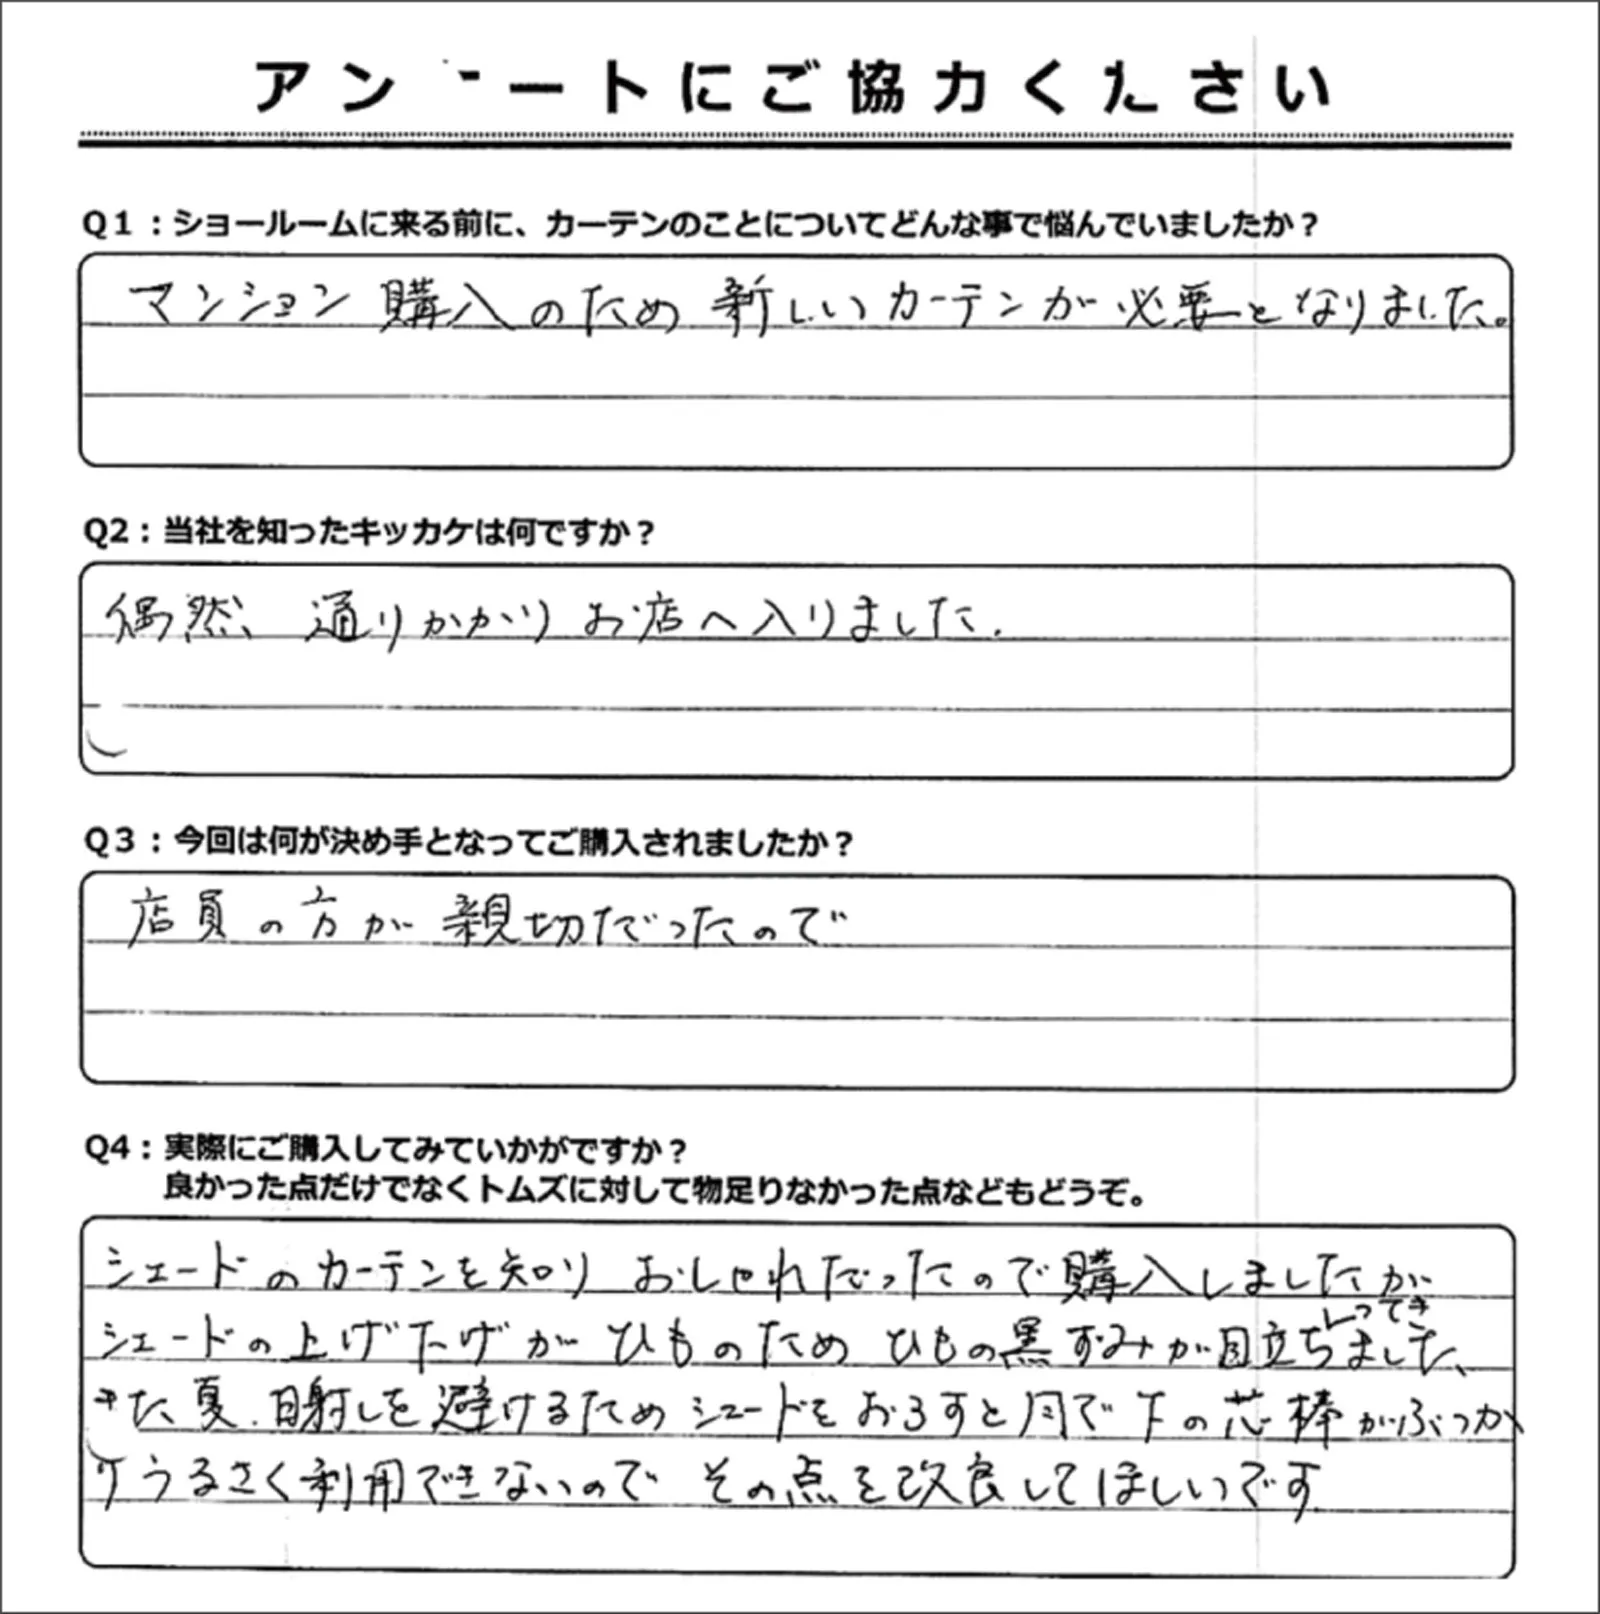 アンケートにご協力ください
Q1：ショールームに来る前に、カーテンのことについてどんな事で悩んでいましたか？
マンション購入のため新しいカーテンが必要となりました。
Q2：当社を知ったキッカケは何ですか？
偶然、通りかかりお店へ入りました.
Q3：今回は何が決め手となってご購入されましたか？
店員の方が親切だったので
Q4：実際にご購入してみていかがですか？
良かった点だけでなくトムズに対して物足りなかった点などもどうぞ。
シェードのカーテンを知りおしゃれだったので購入しましたが
シェードの上げ下げがひものためひもの黒ずみが目立ち
ってき
ました、
また夏、日射しを避けるためシェードをおろすと
で下の芯棒がぶつか
りうるさく利用できないのでその点を改良してほしいです